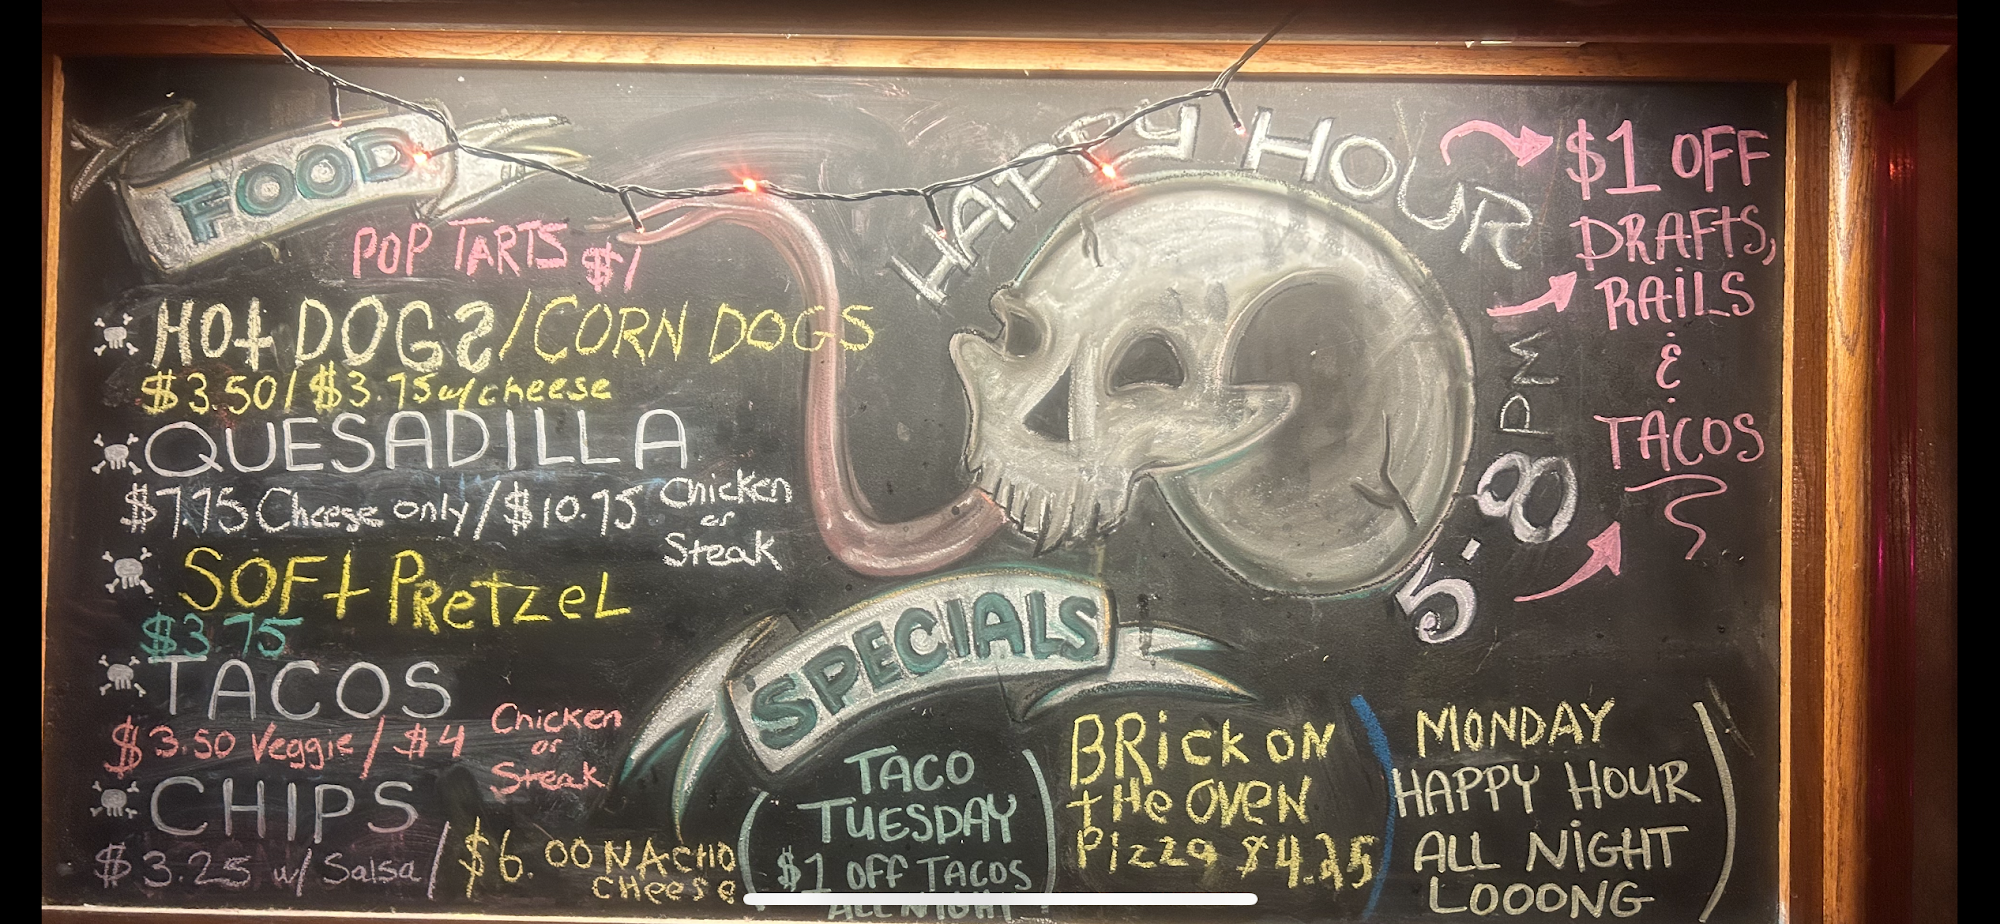 FOOD
POP TARTS $1
HOt DOGS/CORN DOGS
$3.50/$3.75 w/cheese
QUESADILLA
$7.75 Cheese only/$10.75 Chicken
or
Steak
SOFt PRetzeL
$3.75
TACOS
$3.50 Veggie/$4 Chicken
or
Steak
CHIPS
$3.25 w/ Salsa/$6.00 NACHO
CHeese
HAPPY HOUR
5-8 PM
$1 OFF
DRAFtS,
RAiLS
&
TACOS
SPECIALS
TACO
TUESDAY
$1 OFF TACOS
ALL NIGHT
BRickON
tHe OVEN
Pizza $4.25
MONDAY
HAPPY HOUR
ALL NiGHT
LOOONG